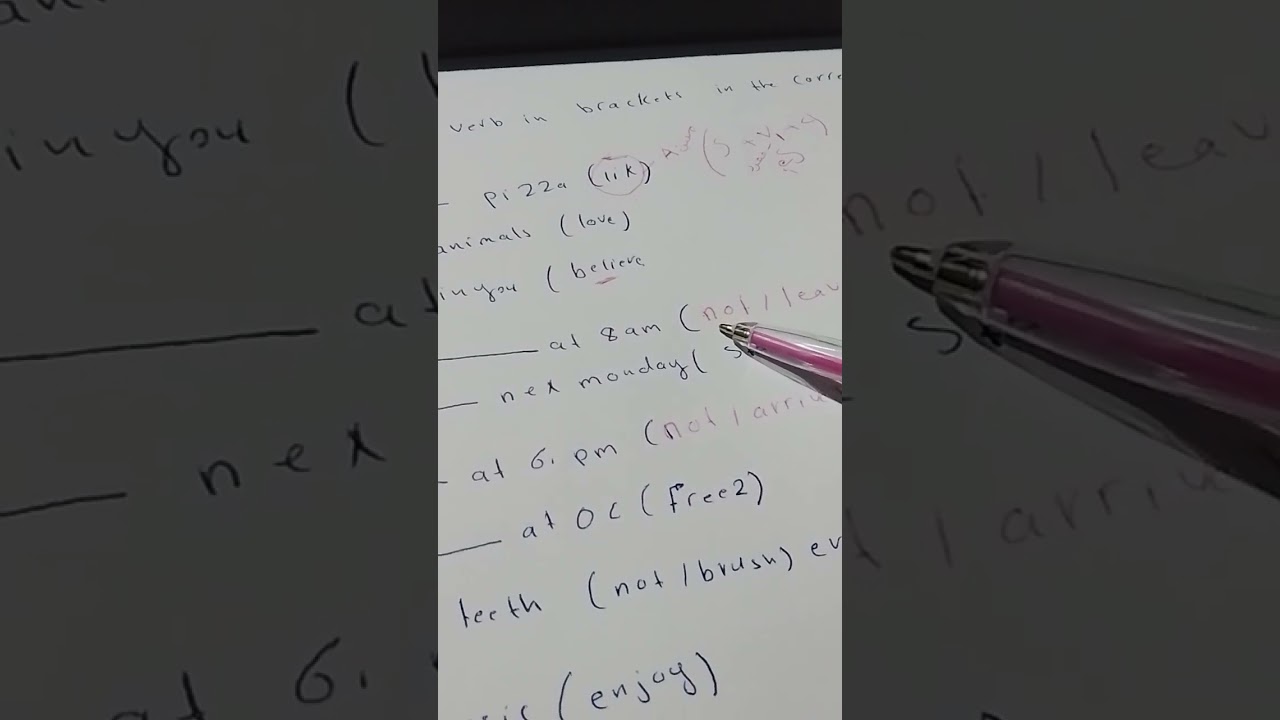 verb in brackets in the corre
pizza (lik) (S + V1 + s)
animals (love)
in you (believe
at 8am (not / leav
nex monday ( s
at 6. pm (not / arriv
at 0 c (free2)
teeth (not / brush) ev
(enjoy)